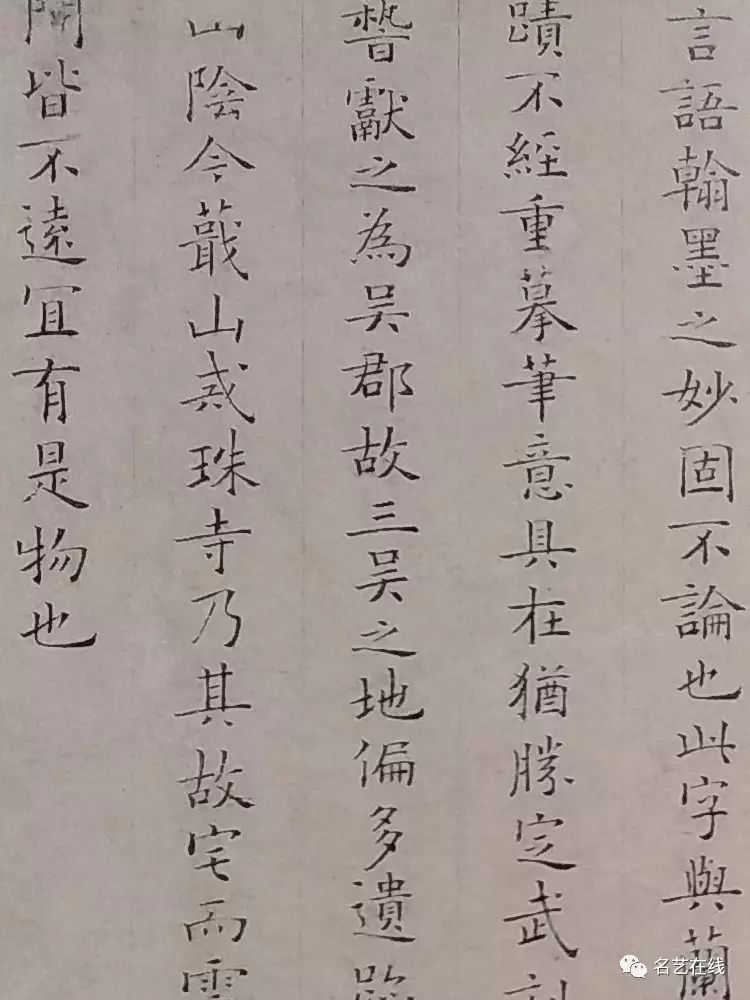 言語翰墨之妙固不論也此字與蘭
蹟不經重摹筆意具在猶勝定武刻
誓獻之為吴郡故三吴之地偏多遺跡
山陰今蕺山戒珠寺乃其故宅而雲
門皆不遠宜有是物也
名艺在线